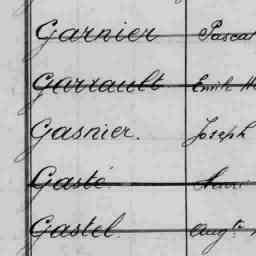 Garnier Pascal
Garrault Emile
Gasnier. Joseph
Gasté Henri
Gastel Augte